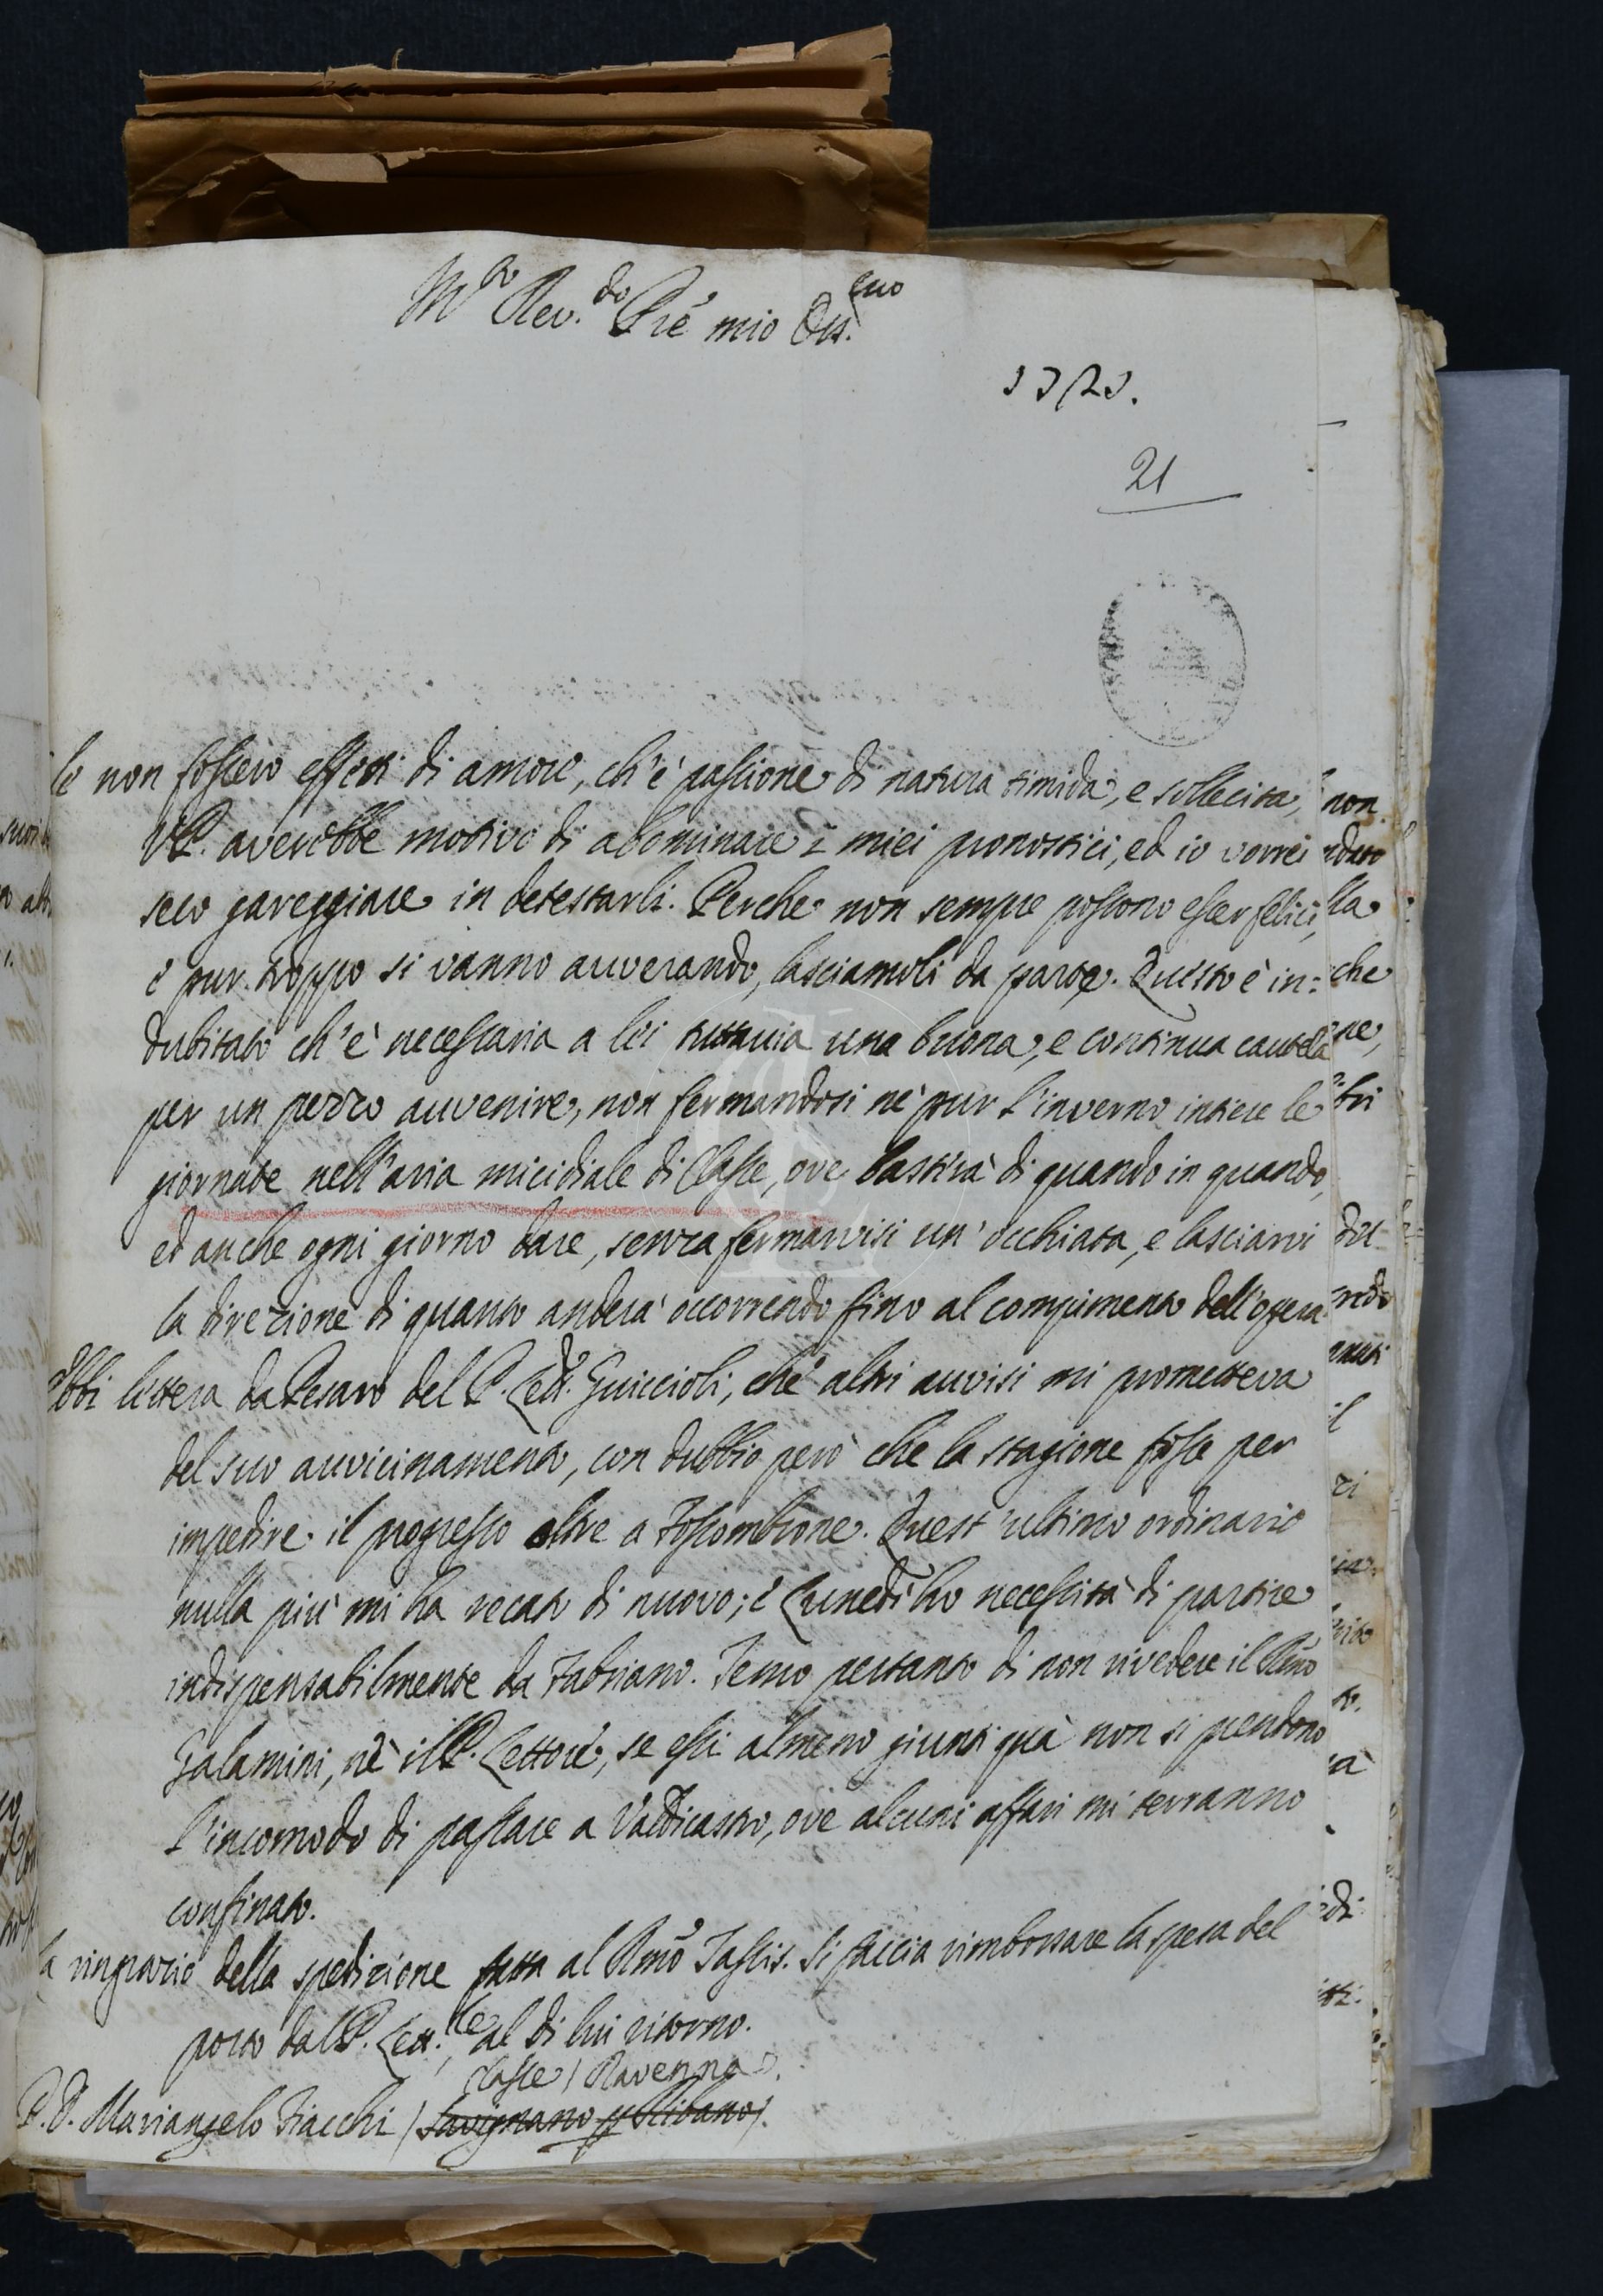 M.to Rev.do Prè mio Oss.mo
1721.
21
Se non fossero effetti di amore, ch'è passione di natura timida, e sollecita,
V.P. averebbe motivo di abominare i miei pronostici, ed io vorrei
seco gareggiare in detestarli. Perche non sempre possono esser felici,
e pur troppo si vanno avverando, lasciamoli da parte. Questo è in:
dubitato ch'è necessaria a lei tuttavia una buona, e continua cautela
per un pezzo avvenire, non fermandosi nè pur l'inverno intiere le
giornate nell'aria micidiale di Classe, ove bastirà di quando in quando,
ed anche ogni giorno dare, senza fermarvisi un' occhiata, e lasciarvi
la direzione di quanto anderà occorrendo fino al compimento dell'opera.
Ebbi lettera da Pesaro del P. Guiccioli, che altri avvisi mi prometteva
del suo avvicinamento, con dubbio però che la stagione fosse per
impedire il progresso oltre a Fossombrone. Quest'ultimo ordinario
nulla più mi ha recato di nuovo; e Lunedì ho necessità di partire
indispensabilmente da Fabriano. Temo pertanto di non rivedere il Rmo
Galamini, nè il P. Lettore, se essi almeno giunti quà non si prendono
l'incomodo di passare a Valdicastro, ove alcuni affari mi terranno
confinato.
La ringrazio della spedizione fatta al Rmo Tassis. Si faccia rimborsare la spesa del
porto dal P. Lett.re, al di lui ritorno.
Classe / Ravenna.
P. D. Mariangelo Fiacchi / Savignano